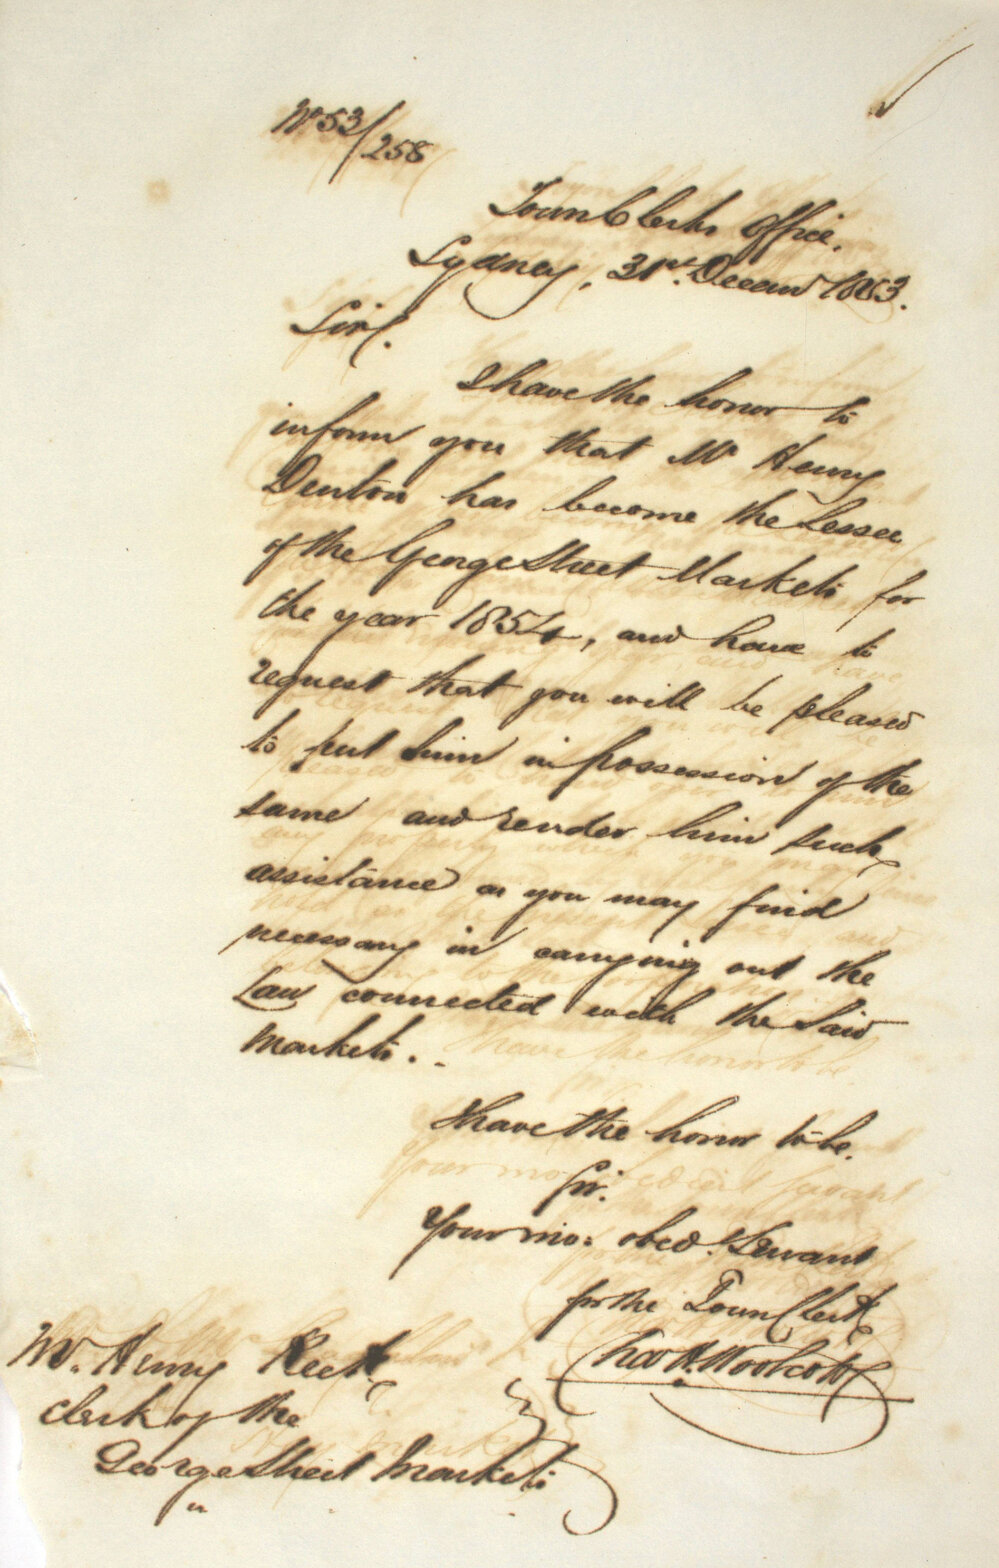 No 53/258
Town Clerks Office.
Sydney, 31st. Decem 1853.
Sir,
I have the honor to
inform you that Mr Henry
Denton has become the Lessee
of the George Street Markets for
the year 1854, and have to
request that you will be pleased
to put him in possession of the
same and render him such
assistance as you may find
necessary in carrying out the
Law connected with the said
Markets.
I have the honor to be.
Sir.
Your mo: obed. Servant
for the Town Clerk
Chas H. Woolcott
Mr. Henry
Clerk of the
George Street Markets